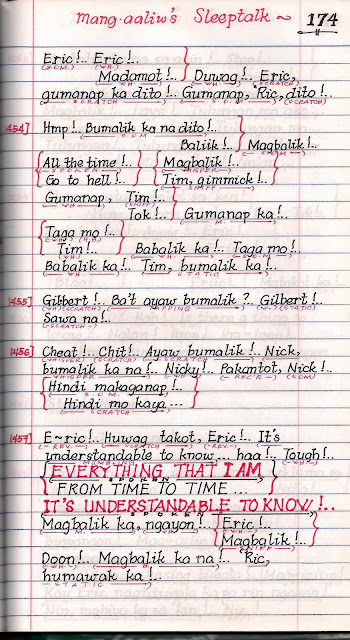 Mang-aaliw's Sleeptalk ~ 174
Eric!.. Eric!..
Madamot!.. Duwag!.. Eric,
gumanap ka dito!.. Gumanap, Ric, dito!..
454] Hmp!.. Bumalik ka na dito!..
Baliik!.. Magbalik!..
All the time!.. Magbalik!..
SPOKEN WHISPER
Go to hell!.. Tim, gimmick!..
Gumanap, Tim!..
Tok!.. Gumanap ka!..
Taga mo!..
Tim!.. Babalik ka!.. Taga mo!..
Babalik ka!.. Tim, bumalik ka!..
STATIC
455] Gilbert!.. Ba't ayaw bumalik?.. Gilbert!..
(SCRATCH) TAPPING (STATIC)
Sawa na!..
SCRATCH
456] Cheat!.. Chit!.. Ayaw bumalik!.. Nick,
bumalik ka na!.. Nicky!.. Pakantot, Nick!..
Hindi makaganap!..
Hindi mo kaya...
SCRATCH
457] E~ric!.. Huwag takot, Eric!.. It's
understandable to know... haa!.. Tough!..
EVERYTHING THAT I AM
SPOKEN
FROM TIME TO TIME...
IT'S UNDERSTANDABLE TO KNOW!..
SPOKEN
Magbalik ka, ngayon!.. Eric!..
Magbalik!..
SNIFF
Doon!.. Magbalik ka na!.. Ric,
humawak ka!..
STATIC